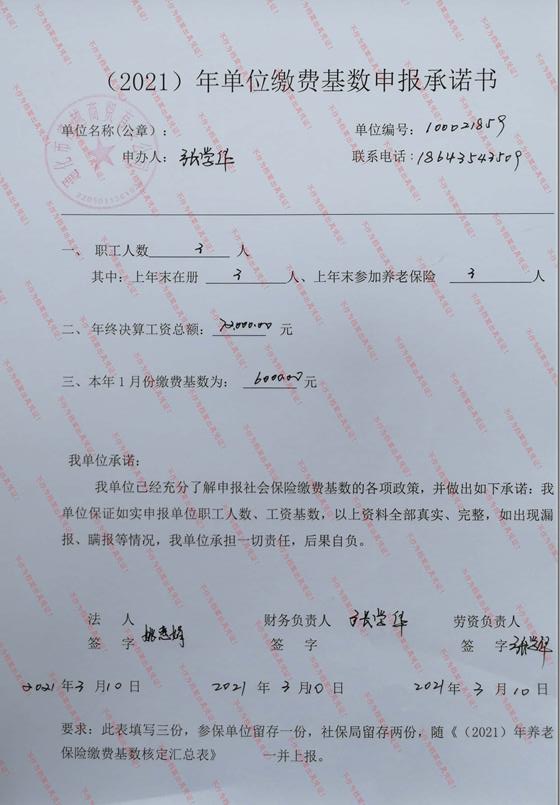 （2021）年单位缴费基数申报承诺书
单位名称(公章)：
单位编号：100021859
申办人：张学华
联系电话：18643543509
一、 职工人数 3 人
其中：上年末在册 3 人、上年末参加养老保险 3 人
二、年终决算工资总额：72,000.00 元
三、本年1月份缴费基数为： 6000.00 元
我单位承诺：
我单位已经充分了解申报社会保险缴费基数的各项政策，并做出如下承诺：我
单位保证如实申报单位职工人数、工资基数，以上资料全部真实、完整，如出现漏
报、瞒报等情况，我单位承担一切责任，后果自负。
法 人 财务负责人 张学华 劳资负责人
签 字 签 字 签 字 张学华
2021 年 3 月 10 日 2021 年 3 月 10 日 2021 年 3 月 10 日
要求：此表填写三份，参保单位留存一份，社保局留存两份，随《（2021）年养老
保险缴费基数核定汇总表》 一并上报。